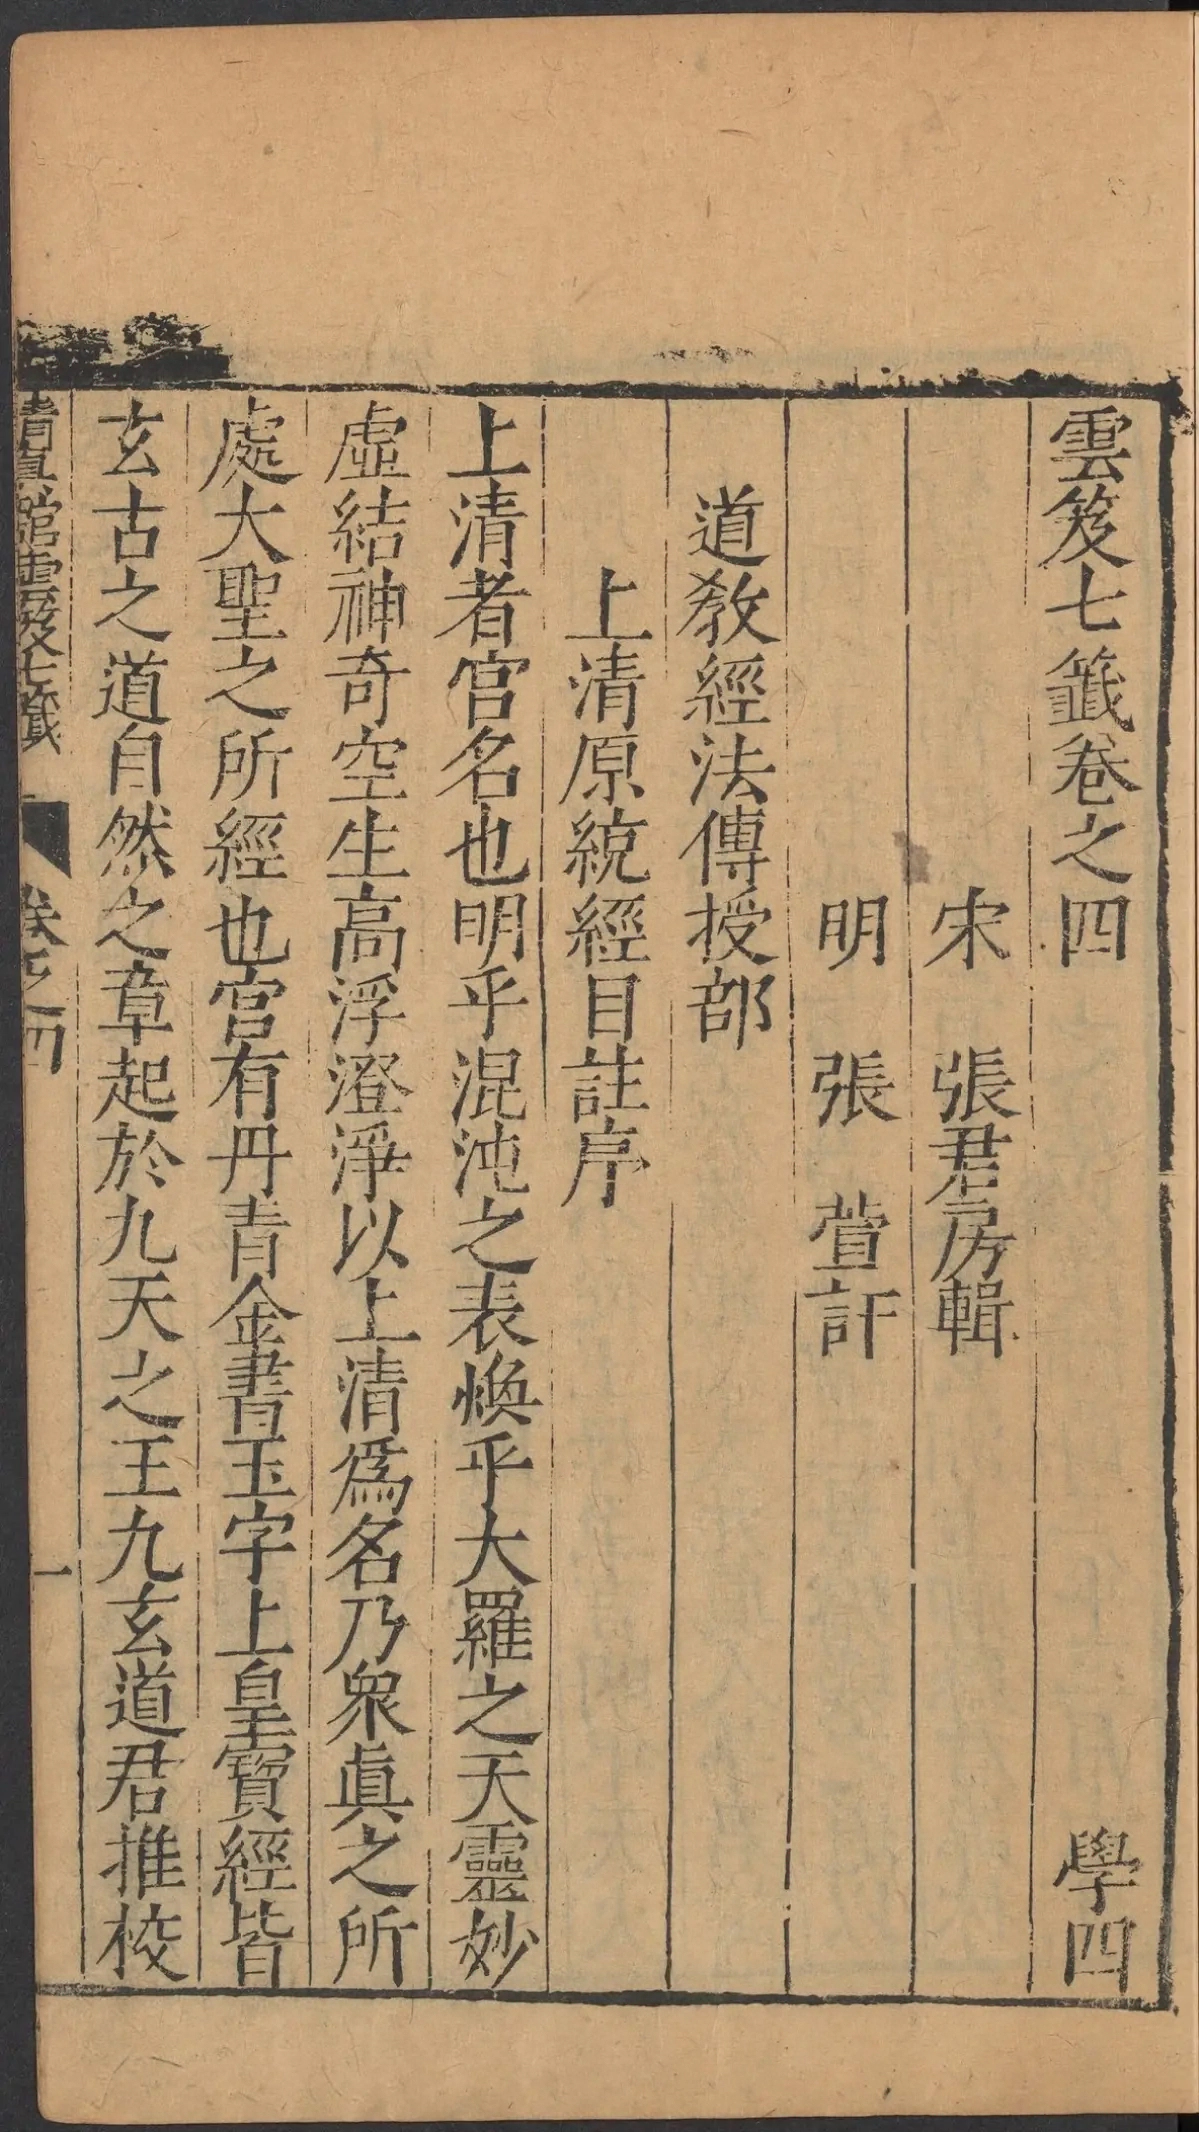 雲笈七籤卷之四　學四
宋　張君房輯
明　張　萱訂
道教經法傳授部
上清原統經目註序
上清者宫名也明乎混沌之表煥乎大羅之天靈妙
虛結神奇空生高浮澄淨以上清爲名乃衆眞之所
處大聖之所經也宫有丹青金書玉字上皇寶經皆
玄古之道自然之章起於九天之王九玄道君推校
清眞館雲笈七籤　卷之四　一